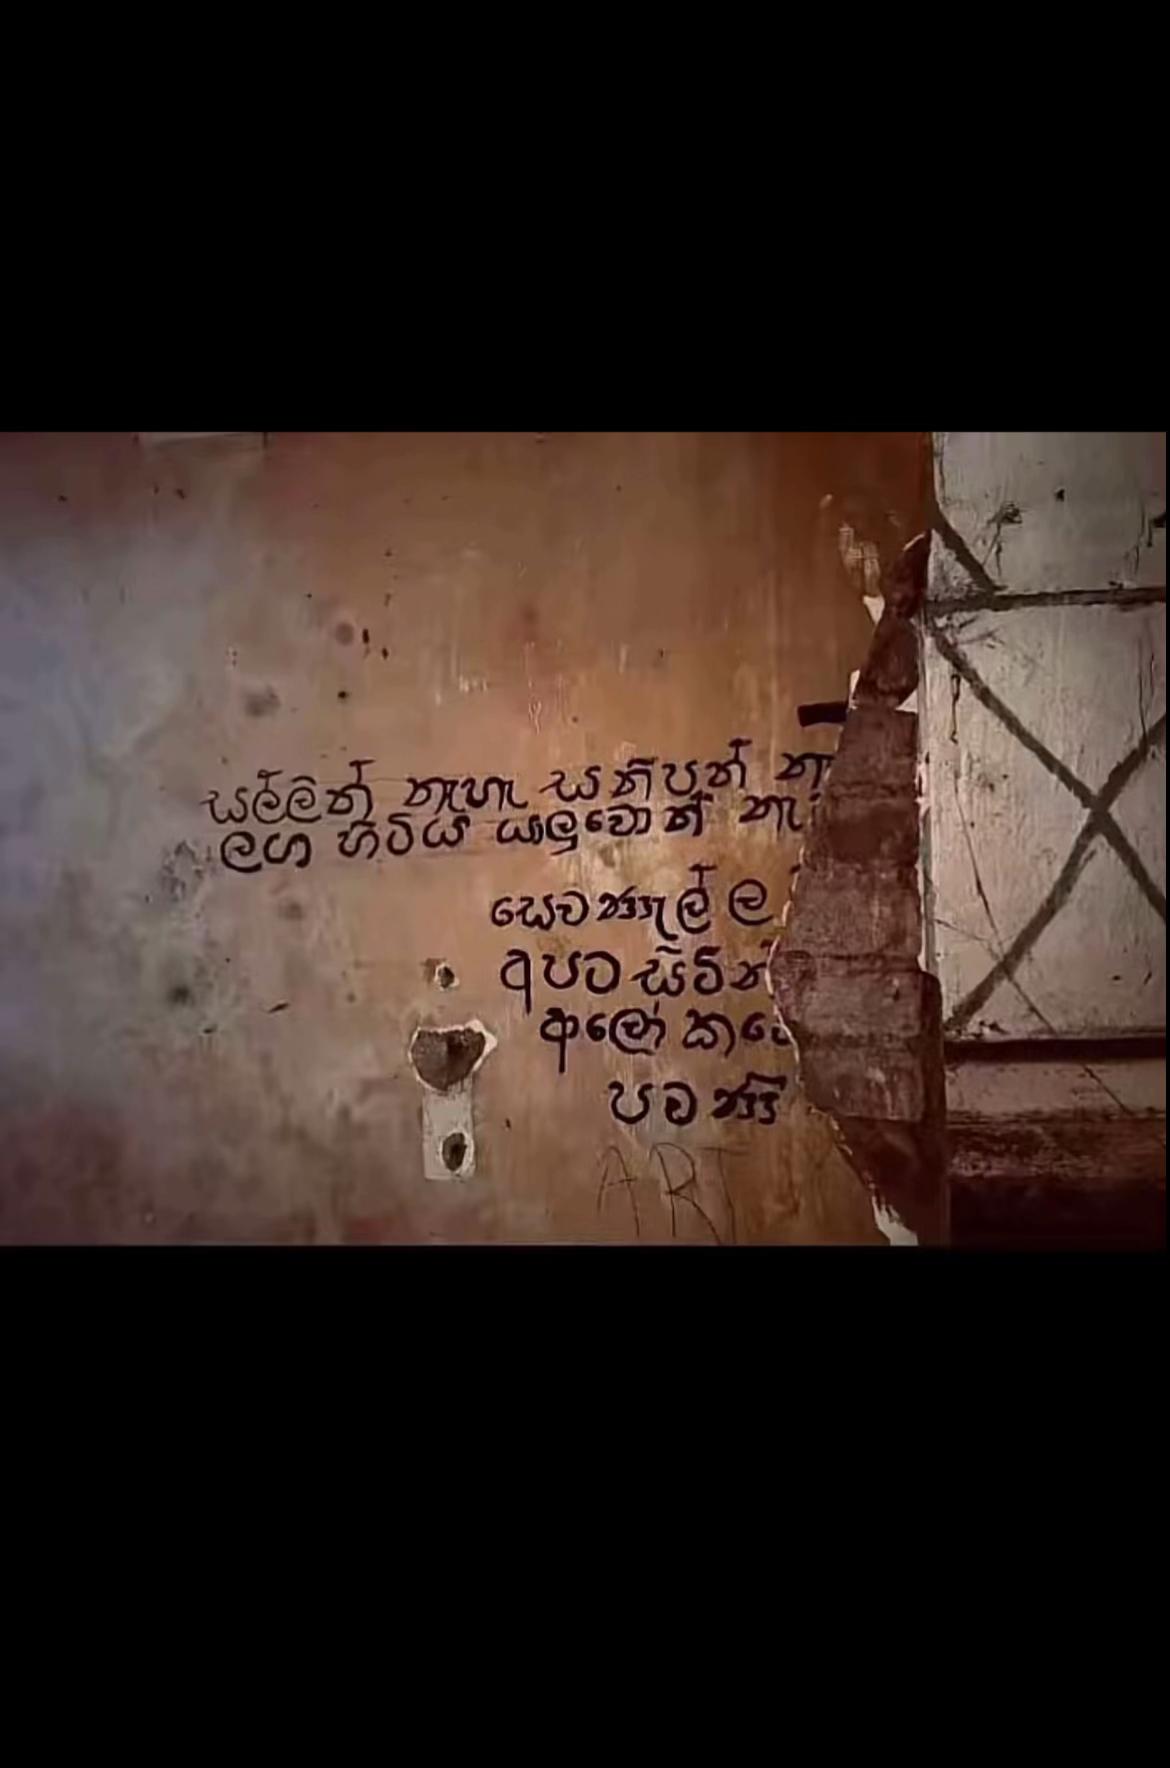 සල්ලිත් නැහැ සනීපත් නැ
ලග හිටිය යාලුවොත් නැ
සෙවණැල්ල
අපට සිටින්
ආලෝකයේ
පමණි
ART